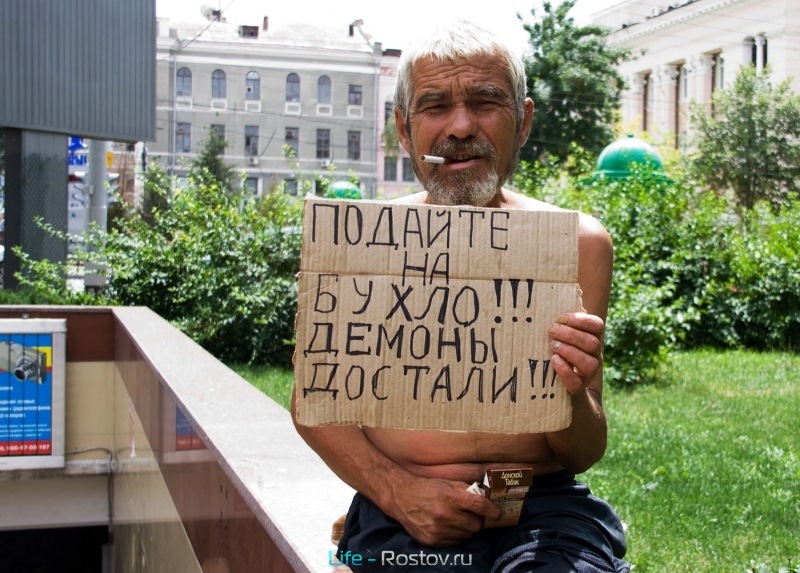 ПОДАЙТЕ
НА
БУХЛО!!!
ДЕМОНЫ
ДОСТАЛИ!!!
Донской
Табак
Life - Rostov.ru